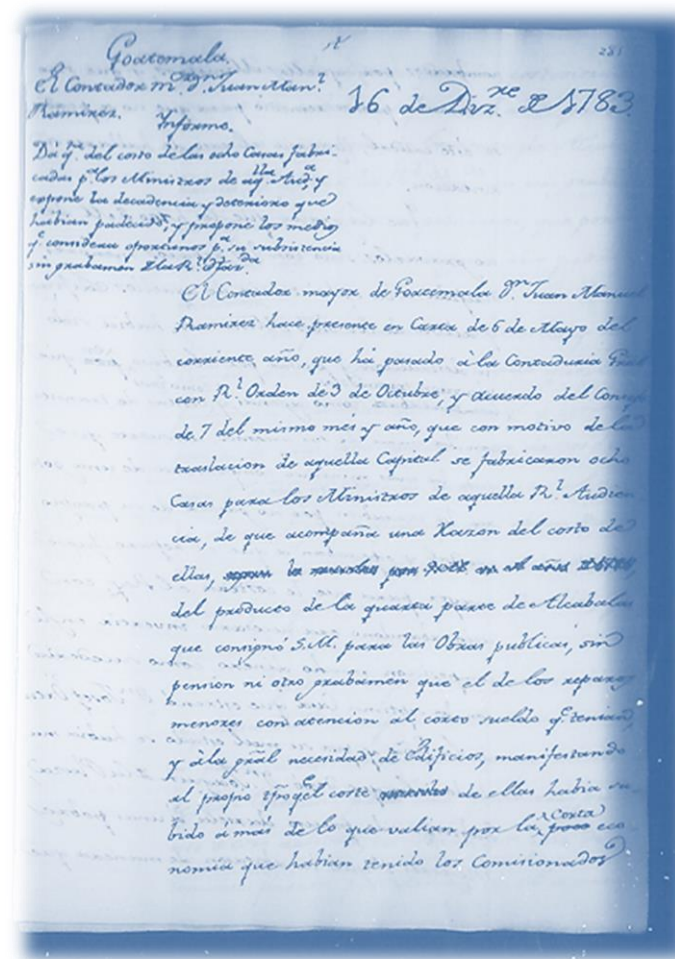 Goatemala
El Contador m.or d.n Juan Man.l
Ramirez.
Informe.
Dá q.ta del costo de las ocho Casas fabri-
cadas p.r los Ministros de aq.lla Aud.a y
expone la decadencia y deterioro que
habian padecido, y propone los medios
q.e considera oportunos p.a su subsistencia
sin grabamen de la R.l Haz.da
281
16 de Diz.re de 1783.
El Contador mayor de Goatemala D.n Juan Manuel
Ramirez hace presente en Carta de 6 de Mayo del
corriente año, que há pasado à la Contaduria Gral
con R.l Orden de 3 de Octubre, y acuerdo del Consejo
de 7 del mismo mes y año, que con motivo de la
traslacion de aquella Capital se fabricaron ocho
Casas para los Ministros de aquella R.l Audien-
cia, de que acompaña una Razon del costo de
ellas,
del producto de la quarta parte de Alcabalas
que consignó S.M. para las Obras publicas, sin
pension ni otro grabamen que el de los reparos
menores con atencion al corto sueldo q.e tenian,
y à la gral necesidad de Edificios, manifestando
al propio tpo q.e el coste de ellas habia su-
bido à más de lo que valian por la corta eco-
nomia que habian tenido los Comisionados